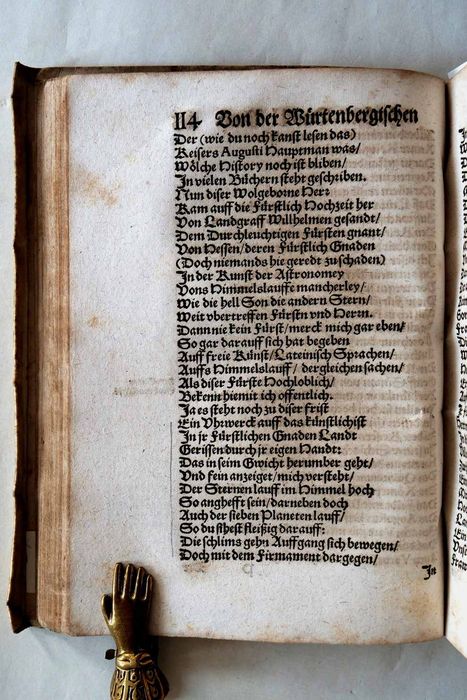 114 Von der Würtenbergischen
Der (wie du noch kanst lesen das)
Keisers Augusti Hauptman was/
Wölche History noch ist bliben/
In vielen Büchern steht geschriben.
Nun diser Wolgeborne Herr
Kam auff die Fürstlich Hochzeit her
Von Landgraff Willhelmen gesandt/
Dem Durchleuchtigen Fürsten gnant/
Von Hessen/deren Fürstlich Gnaden
(Doch niemands hie geredt zu schaden)
In der Kunst der Astronomey
Vons Himmelslauffs mancherley/
Wie die hell Son die andern Stern/
Weit vbertreffen Fürstn vnd Herrn.
Dann nie kein Fürst/merck mich gar eben/
So gar darauff sich hat begeben
Auff freie Künst/Lateinisch Sprachen/
Auffs Himmelslauff/ dergleichen sachen/
Als diser Fürste Hochloblich/
Bekenn hiemit ich offentlich.
Ja es steht noch zu diser frist
Ein Vhrwerck auff das künstlichist
In jr Fürstlichen Gnaden Landt
Gerissen durch jr eigen Handt:
Das in seim Gwicht herumber geht/
Vnd fein anzeiget/mich versteht/
Der Sternen lauff im Himmel hoch
So anghefft sein/darneben doch
Auch der sieben Planeten lauff/
So du sihest fleißig darauff:
Die schlims gehn Auffgang sich bewegen/
Doch mit dem Firmament dargegen/
In